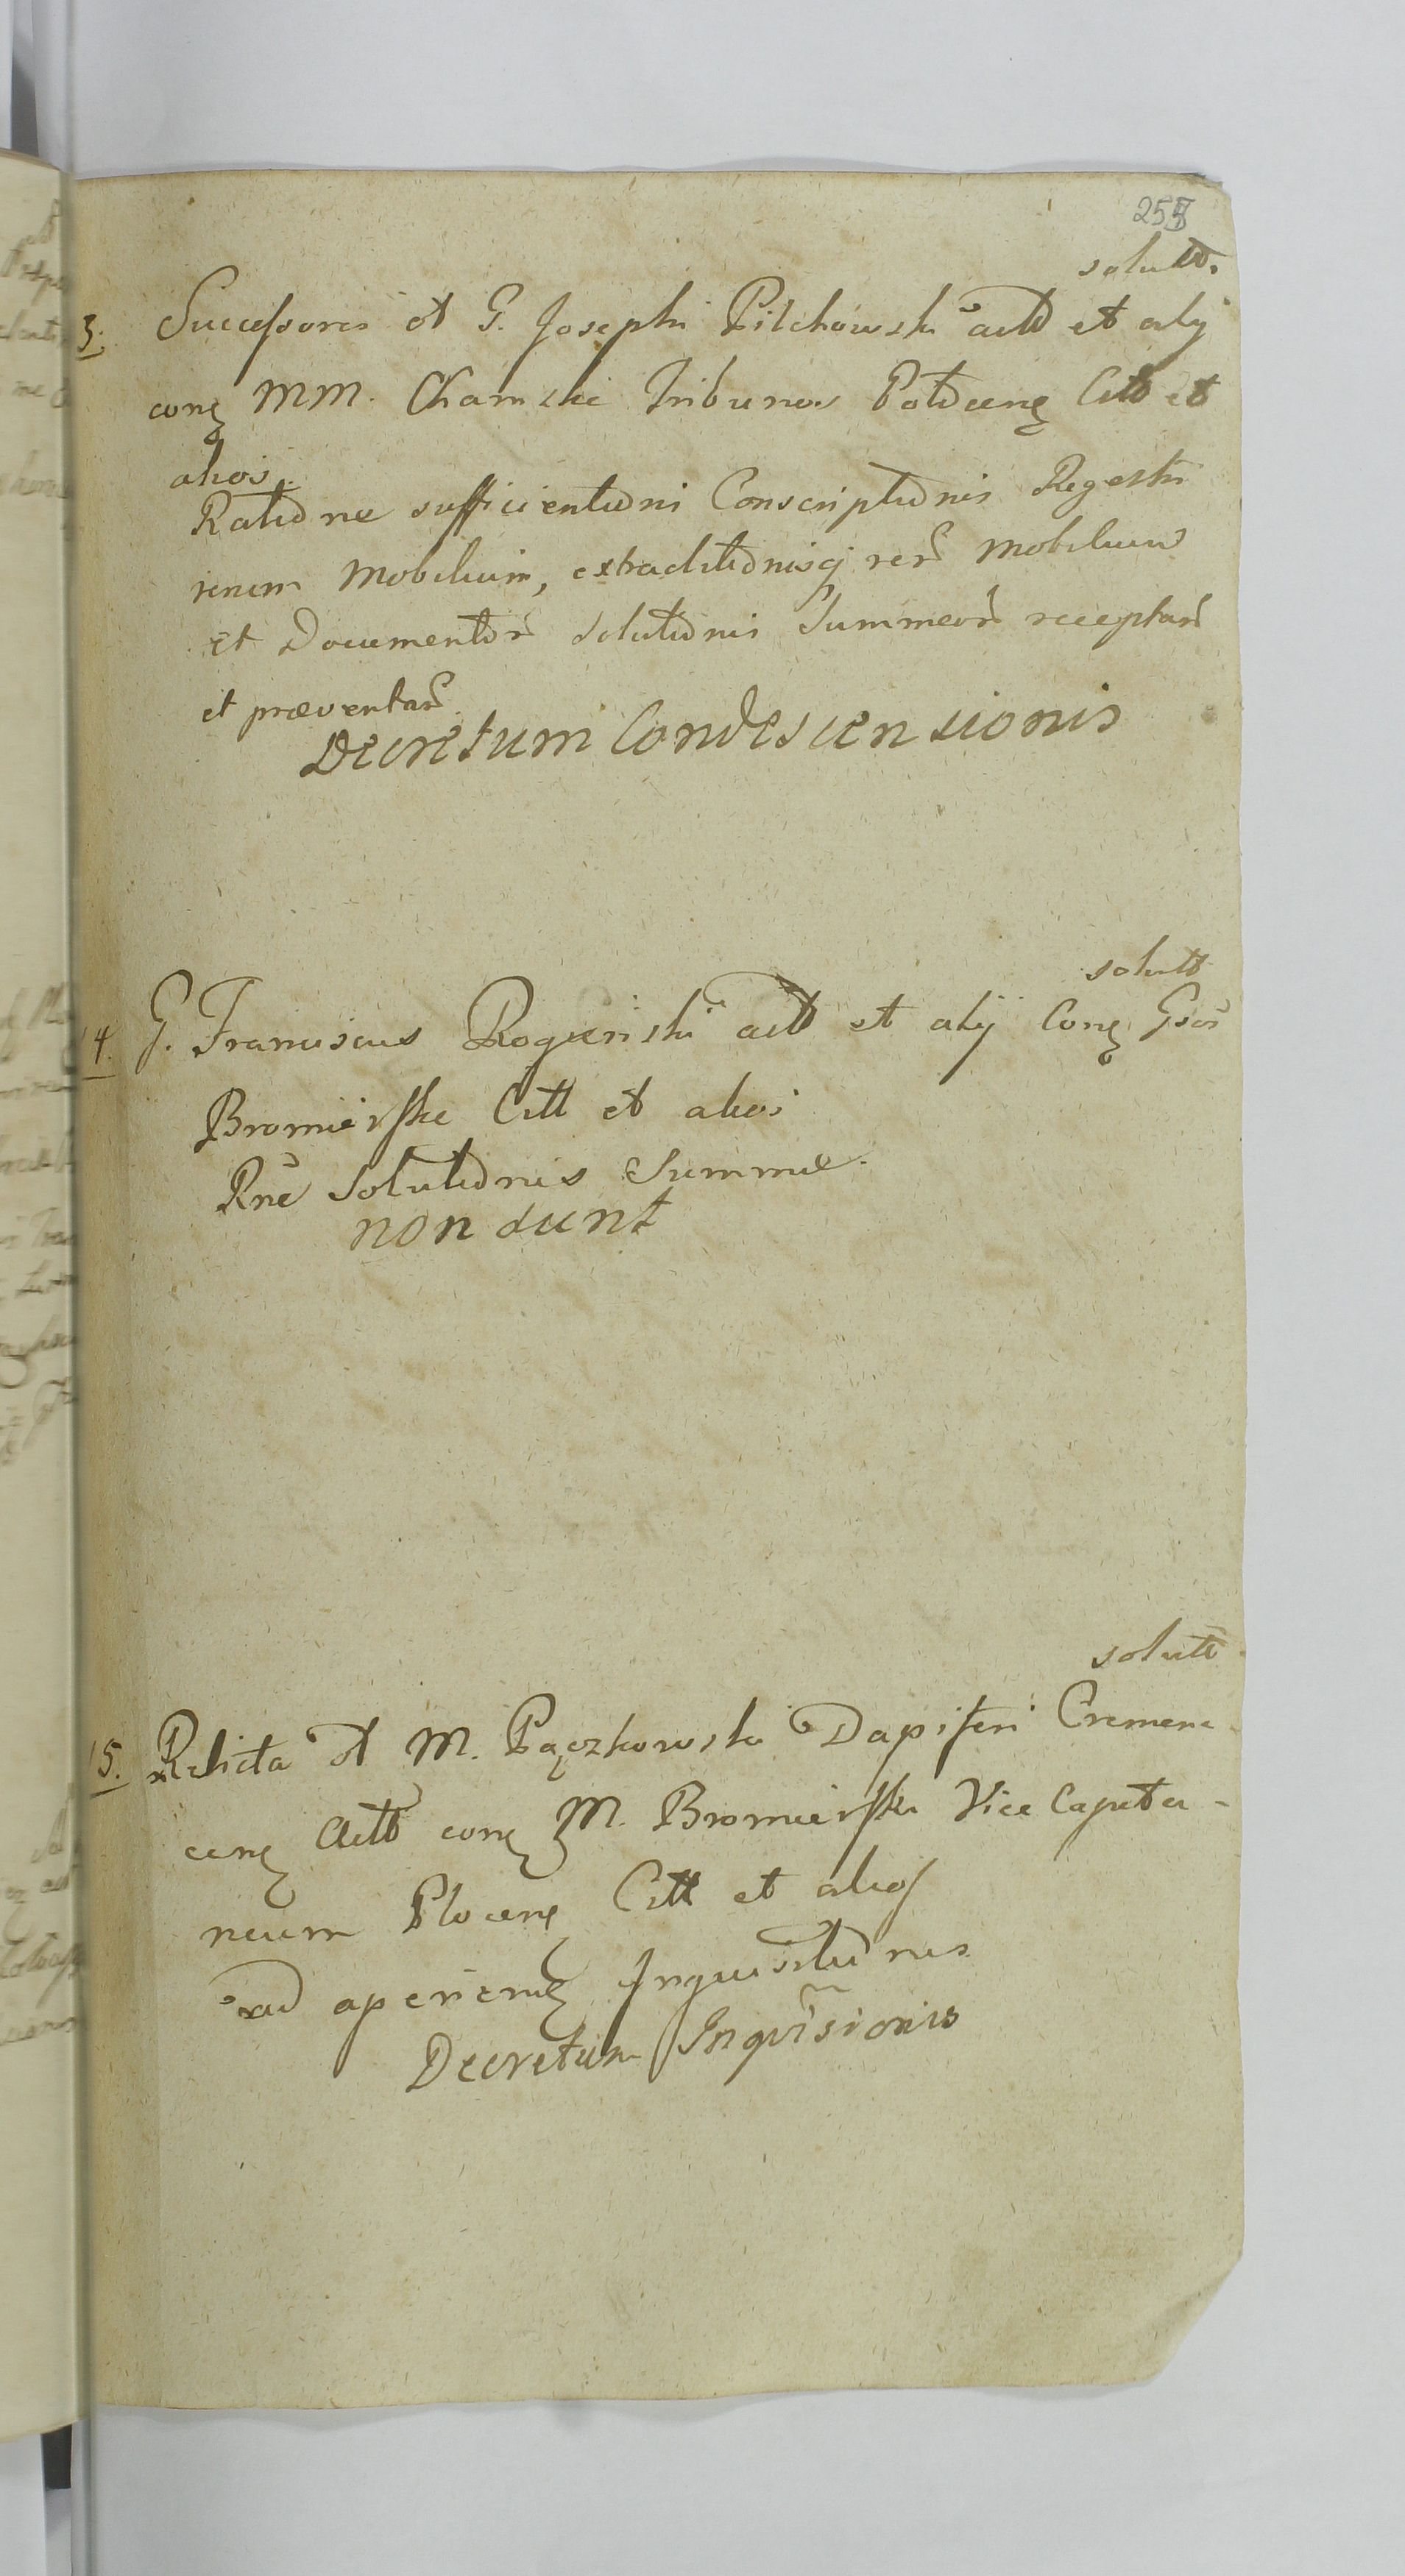 255
solutt.
3. Successores ol G. Josephi Pilchowski actt et alij
conę MM. Chamskie Tribunos Plocenę Citt et
alios.
Ratione sufficientionis Conscriptionis Regestri
rerum Mobilium, extraditionisq rer̃ Mobilium
et Documentor̃ Solutionis Summar̃ receptar̃
et præventar̃.
Decretum Condescensionis
solutt
14. G. Franciscus Rogieński actt et alij Conę Gsos
Bromirskie Citt et alios
Rne Solutionis Summæ.
non sunt
solutt
15. Relicta ol M. Pączkowski Dapiferi Cremene-
cenę Actt conę M. Bromirski Vice Capita-
neum Plocenę Citt et alios
ad aperienđ Inquisitiones
Decretum Inqui͂sionis